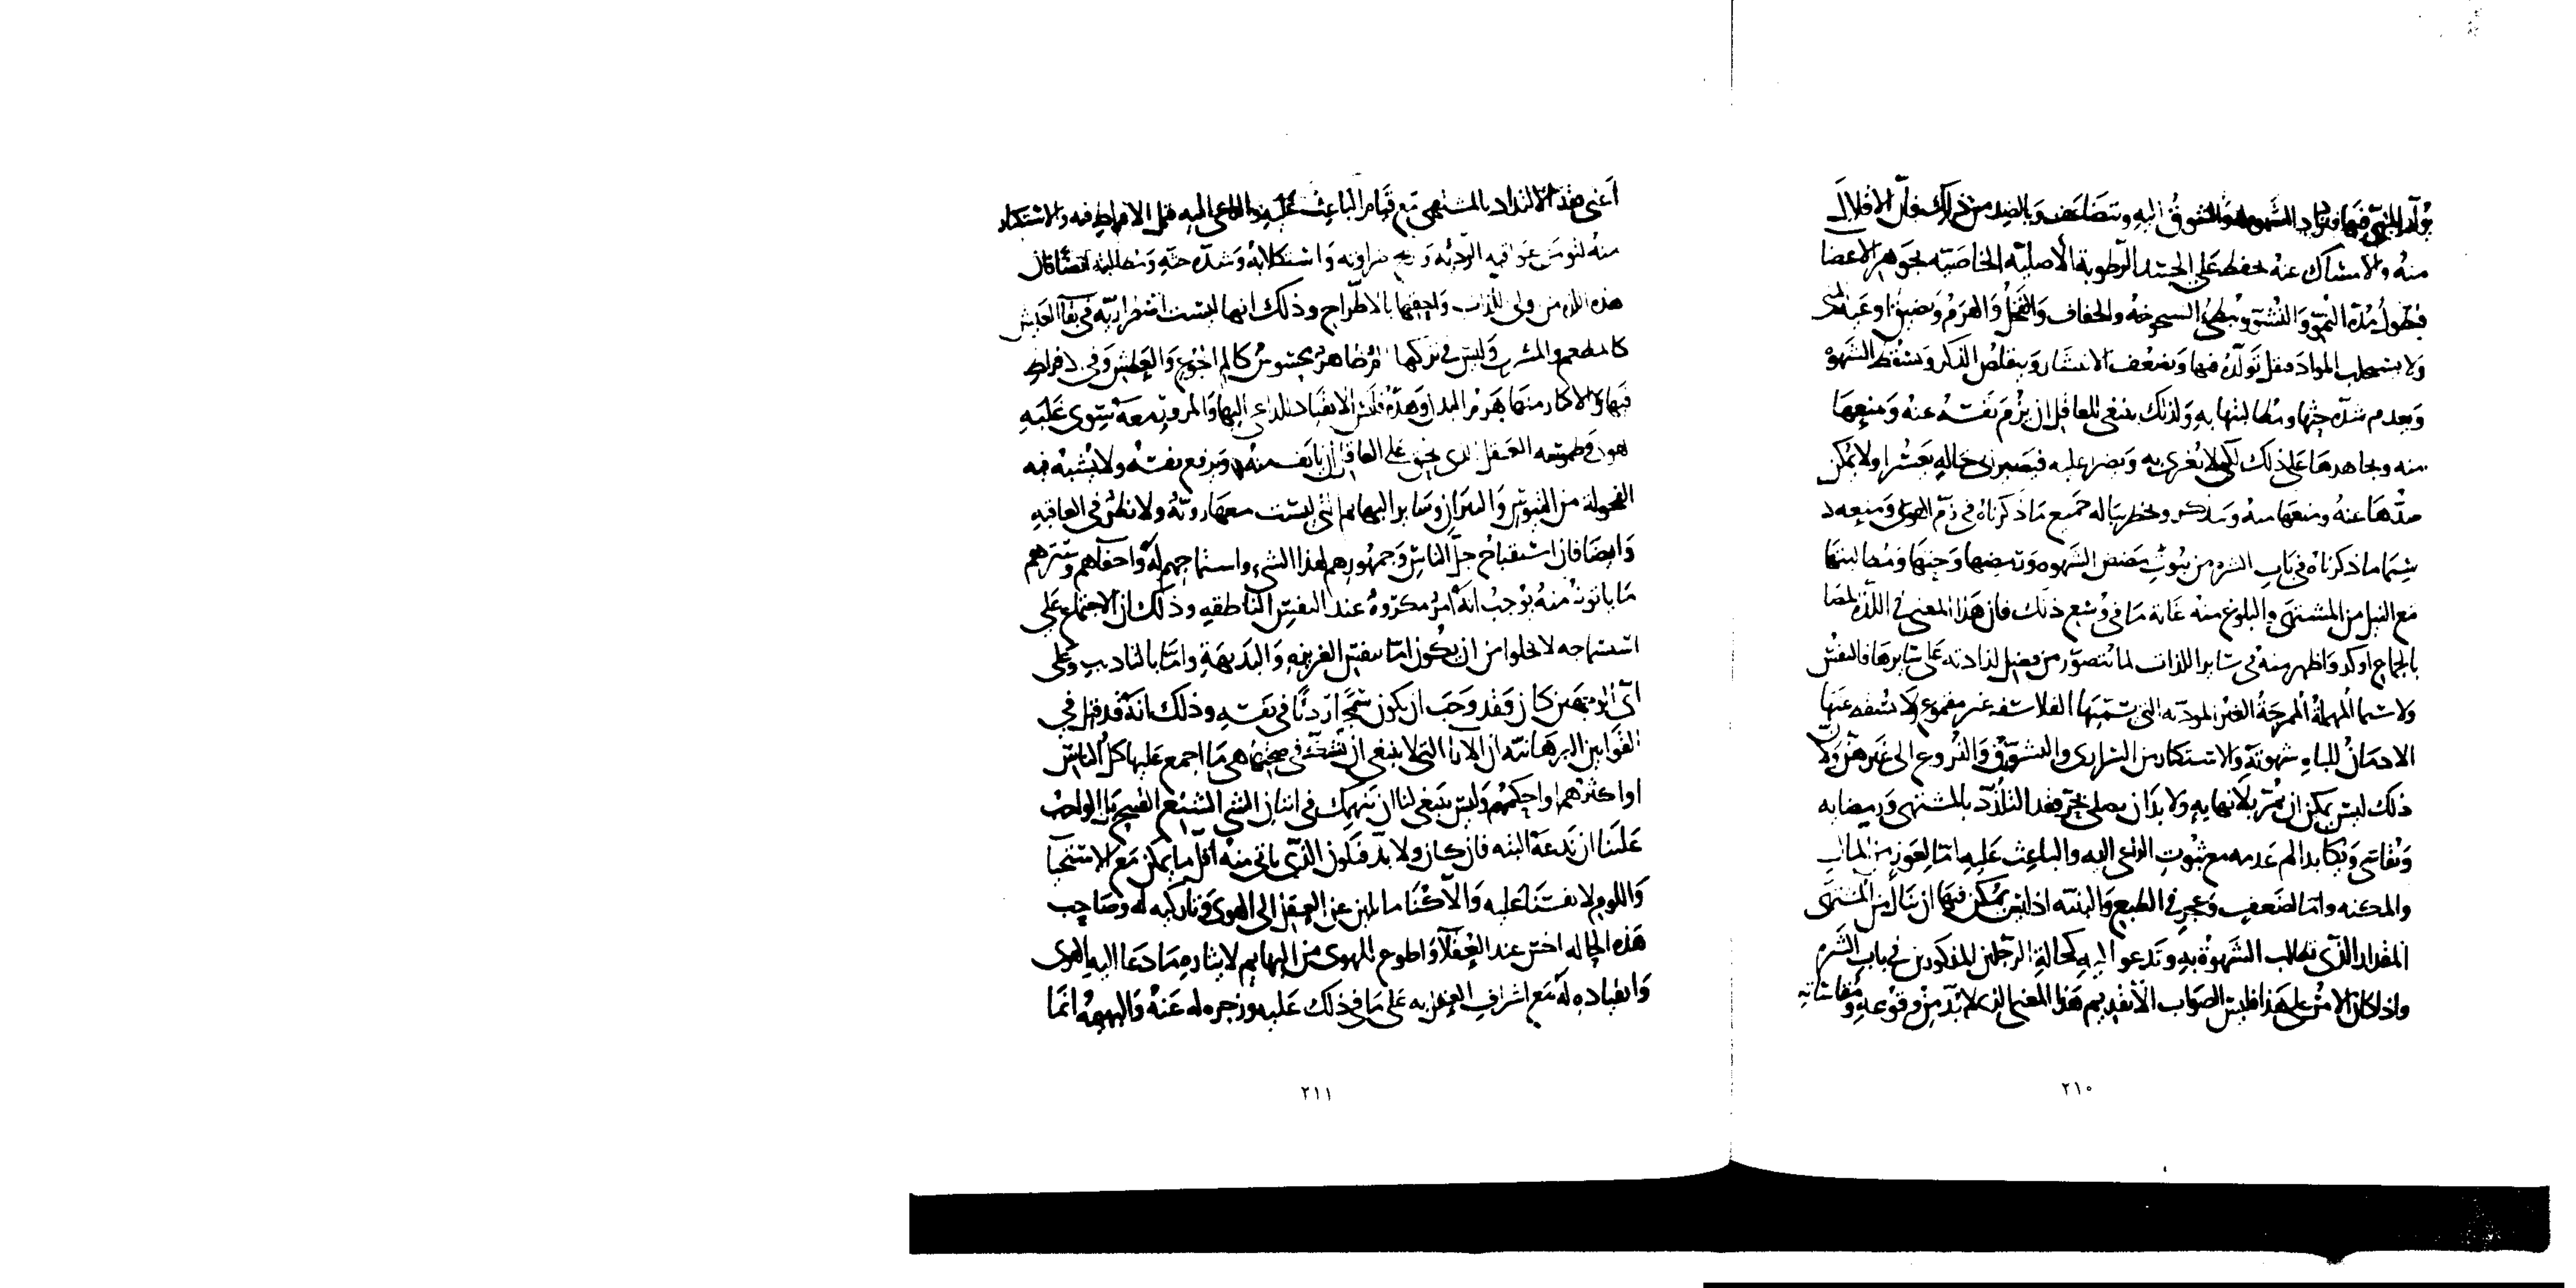 تولد المني فيها فتزداد الشهوة والشوق إليه وتتضاعف وبالضد من ذلك فإن الإقلال
منه والإمساك عنه يحفظ على الجسد الرطوبة الأصلية الخاصية بجوهر الأعضا
فتطول مدة النمو والنشو وتبطئ الشيخوخة والجفاف والقحل والهرم وتضيق أوعية المني
ولا يستجلب المواد فيقل تولده فيها ويضعف الانتشار ويتقلص الذكر وتسقط الشهوة
وتعدم شدة حثها ومطالبتها به ولذلك ينبغي للعاقل أن يزم نفسه عنه ويمنعها
منه ويجاهدها على ذلك لكيلا تغرى به وتضرى عليه فيصير إلى حالة تعسر أو لا يمكن
صدها عنه ومنعها منه ويتذكر ويخطر بباله جميع ما ذكرناه في زم الهوى ومنعه
سيما ما ذكرناه في باب الشره من ثبوت مضض الشهوة ومضيضها وحثها ومطالبتها
مع النيل من المشتهى والبلوغ منه غاية ما في وسع ذلك فإن هذا المعنى في اللذة المصابة
بالجماع أوكد وأظهر منه في سائر اللذات لما يتصور من فضل لذاذته على سائرها فالنفس
ولا سيما المهملة الممرجة الغير المؤدبة التي تسميها الفلاسفة غير مقموعة لا يسقط عنها
الادمان للباه شهوته ولا الاستكثار من السراري والتشوق والنزوع إلى غيرهن ولأن
ذلك ليس يمكن أن يمر بلا نهاية ولا بد أن يصلى بحر فقد التلذذ بالمشتهى ورمضا به
ويقاسي ويكابد ألم عدمه مع ثبوت الداعي إليه والباعث عليه إما لعوز من المال
والمكنة وإما لضعف وعجز في الطبع والبنية إذ ليس يمكن فيها أن ينال من المشتهى
المقدار الذي تطالب الشهوة به وتدعو إليه كحالة الرجلين المذكورين في باب الشره
وإذا كان الأمر على هذا فليس الصواب إلا تقديم هذا المعنى الذي لا بد من وقوعه ومقاساته
٢١٠
أعني فقد الالتذاذ بالمشتهى مع قيام الباعث عليه والداعي إليه قبل الإفراط فيه والاستكثار
منه لتؤمن عواقبه الردية وضراوته واستكلابه وشدة حثه ومطالبته وأيضا فإن
هذه اللذة من أولى اللذات وأحقها بالاطراح وذلك أنها ليست اضطرارية في بقاء العيش
كالمطعم والمشرب وليس في تركها ألم ظاهر محسوس كألم الجوع والعطش وفي الإفراط
فيها والإكثار منها هرم البدن وهده فليس الانقياد للداعي إليها والمرور معه سوى غلبة
هوى وطموسه العقل الذي يحق على العاقل أن يأنف منه ويرفع نفسه ولا يشبه فيه
الفحولة من التيوس والثيران وسائر البهائم التي ليست معها روية ولا نظر في العاقبة
وأيضا فإن استقباح جل الناس وجمهورهم لهذا الشيء واستسماجهم له وإخفاءهم وسترهم
ما يأتون منه يوجب أنه أمر مكروه عند النفس الناطقة وذلك أن الاجتماع على
استسماجه لا يخلو من أن يكون إما بنفس الغريزة والبديهة وإما بالتأديب وعلى
أي الوجهين كان فقد وجب أن يكون سمجا رديا في نفسه وذلك أنه قد قيل في
القوانين البرهانية أن الآرا التي لا ينبغي أن يشك في صحتها هي ما أجمع عليها كل الناس
أو أكثرهم أو أحكمهم وليس ينبغي لنا أن ننهمك في إتيان الشيء الشنيع القبيح بل الواجب
علينا أن ندعه البتة فإن كان ولا بد فيكون الذي يأتي منه أقل ما يمكن مع الاستحيا
واللوم لأنفسنا عليه وإلا كنا مائلين عن العقل إلى الهوى وتاركيه له وصاحب
هذه الحالة أخس عند العقلا وأطوع للهوى من البهائم لإيثاره ما دعا إليه الهوى
وانقياده له مع إشراف العقل به على ما في ذلك عليه وزجره له عنه والبهيمة إنما
٢١١